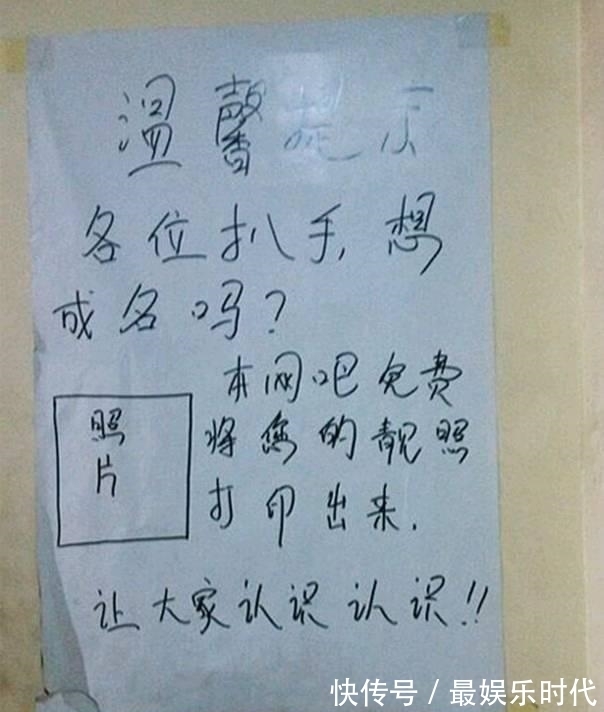 温馨提示
各位扒手,想
成名吗?
本网吧免费
将您的靓照
打印出来.
照
片
让大家认识认识!!
快传号 / 最娱乐时代